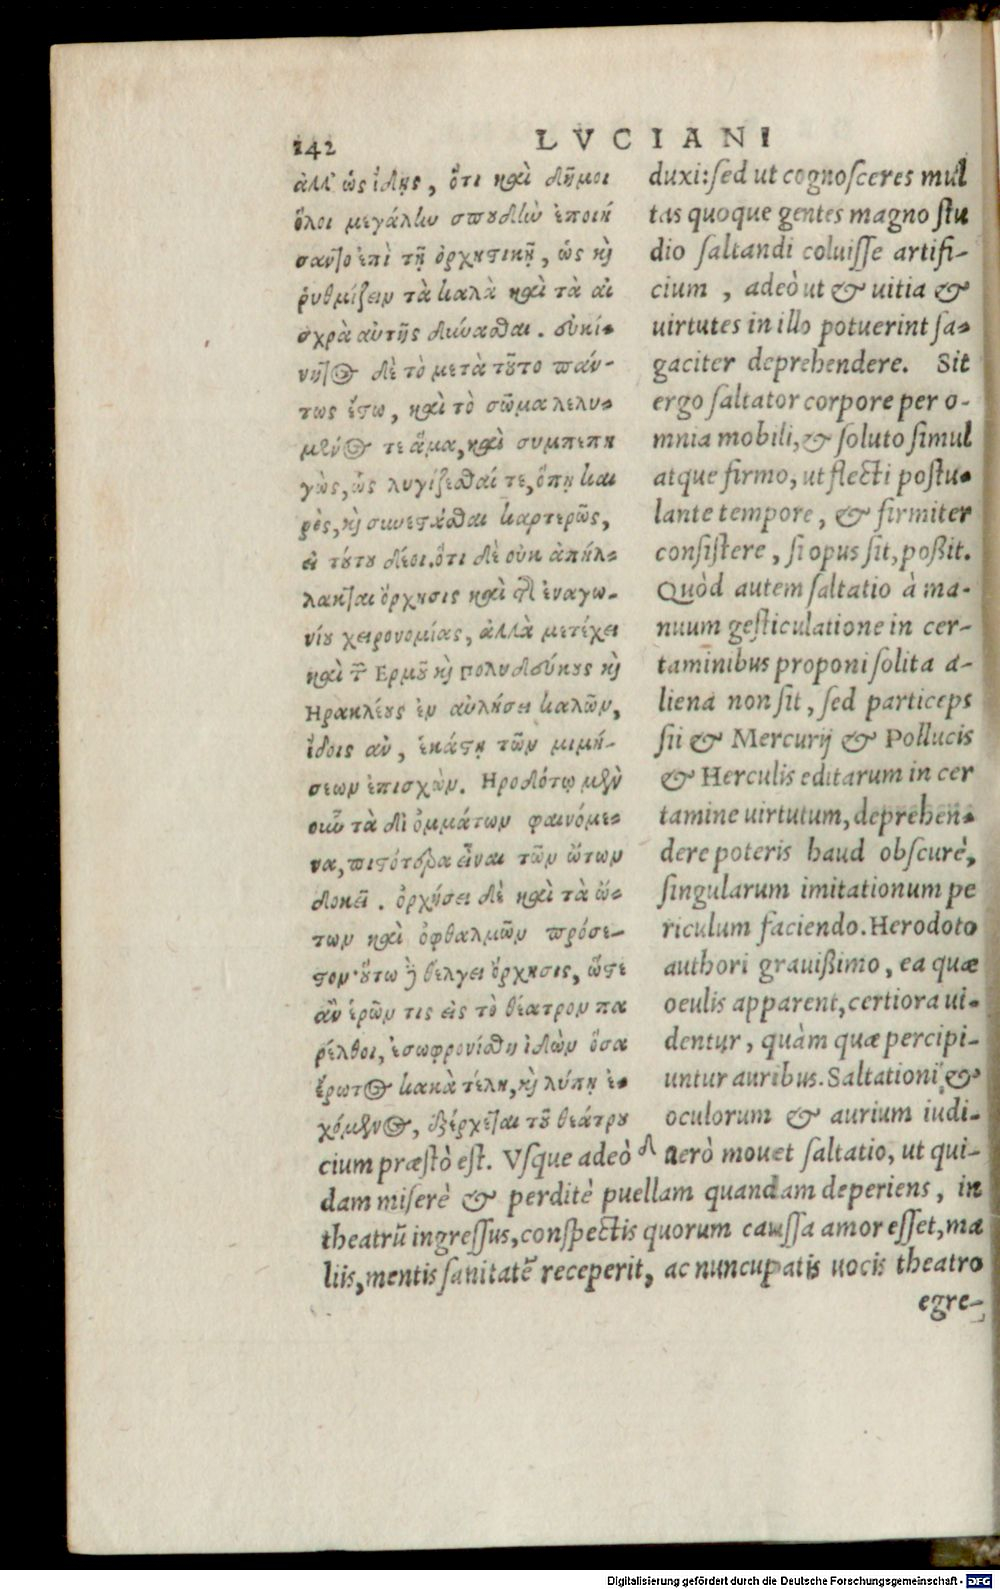 142
LVCIANI
ἀλλ' ὡς ἴδῃς, ὅτι καὶ δῆμοι
ὅλοι μεγάλην σπουδὴν ἐποιή
σαντο ἐπὶ τῇ ὀρχηστικῇ, ὡς καὶ
ῥυθμίζειν τὰ καλὰ καὶ τὰ αἰ
σχρὰ αὐτῆς δύνασθαι. εὐκί-
νητος δὲ τὸ μετὰ τοῦτο πάν-
τως ἔστω, καὶ τὸ σῶμα λελυ-
μένος τε ἅμα, καὶ συμπεπη
γὼς, ὡς λυγίζεσθαί τε, ὅπη και
ρὸς, καὶ συνεστάσθαι καρτερῶς,
εἰ τούτου δέοι. ὅτι δὲ οὐκ ἀπήλ-
λακται ὄρχησις καὶ τῆς ἐναγω-
νίου χειρονομίας, ἀλλὰ μετέχει
καὶ τῶν Ερμοῦ καὶ Πολυδεύκους καὶ
Ηρακλέους ἐν ἀθλήσει καλῶν,
ἴδοις ἂν, ἑκάστῃ τῶν μιμή-
σεων ἐπισχών. Ηροδότῳ μὲν
οὖν τὰ δι' ὀμμάτων φαινόμε-
να, πιστότερα εἶναι τῶν ὤτων
δοκεῖ. ὀρχήσει δὲ καὶ τὰ ὤ-
των καὶ ὀφθαλμῶν πρόσε-
στον· οὕτω δὲ θέλγει ὄρχησις, ὥστε
ἂν ἐρῶν τις εἰς τὸ θέατρον πα
ρέλθοι, ἐσωφρονίσθη ἰδὼν ὅσα
ἔρωτος κακὰ τέλη, καὶ λύπῃ ἐ-
χόμενος, ἐξέρχεται τοῦ θεάτρου
duxi: sed ut cognosceres mul
tas quoque gentes magno stu
dio saltandi coluisse artifi-
cium, adeò ut & uitia &
uirtutes in illo potuerint sa-
gaciter deprehendere. Sit
ergo saltator corpore per o-
mnia mobili, & soluto simul
atque firmo, ut flecti postu-
lante tempore, & firmiter
consistere, si opus sit, poßit.
Quòd autem saltatio à ma-
nuum gesticulatione in cer-
taminibus proponi solita a-
liena non sit, sed particeps
sii & Mercurij & Pollucis
& Herculis editarum in cer
tamine uirtutum, deprehen-
dere poteris haud obscurè,
singularum imitationum pe
riculum faciendo. Herodoto
authori grauißimo, ea quæ
oculis apparent, certiora ui-
dentur, quàm quæ percipi-
untur auribus. Saltationi &
oculorum & aurium iudi-
cium præstò est. Vsque adeò uerò mouet saltatio, ut qui-
dam miserè & perditè puellam quandam deperiens, in
theatrũ ingressus, conspectis quorum caussa amor esset, ma
liis, mentis sanitatẽ receperit, ac nuncupatis uocis theatro
egre-
Digitalisierung gefördert durch die Deutsche Forschungsgemeinschaft - DFG